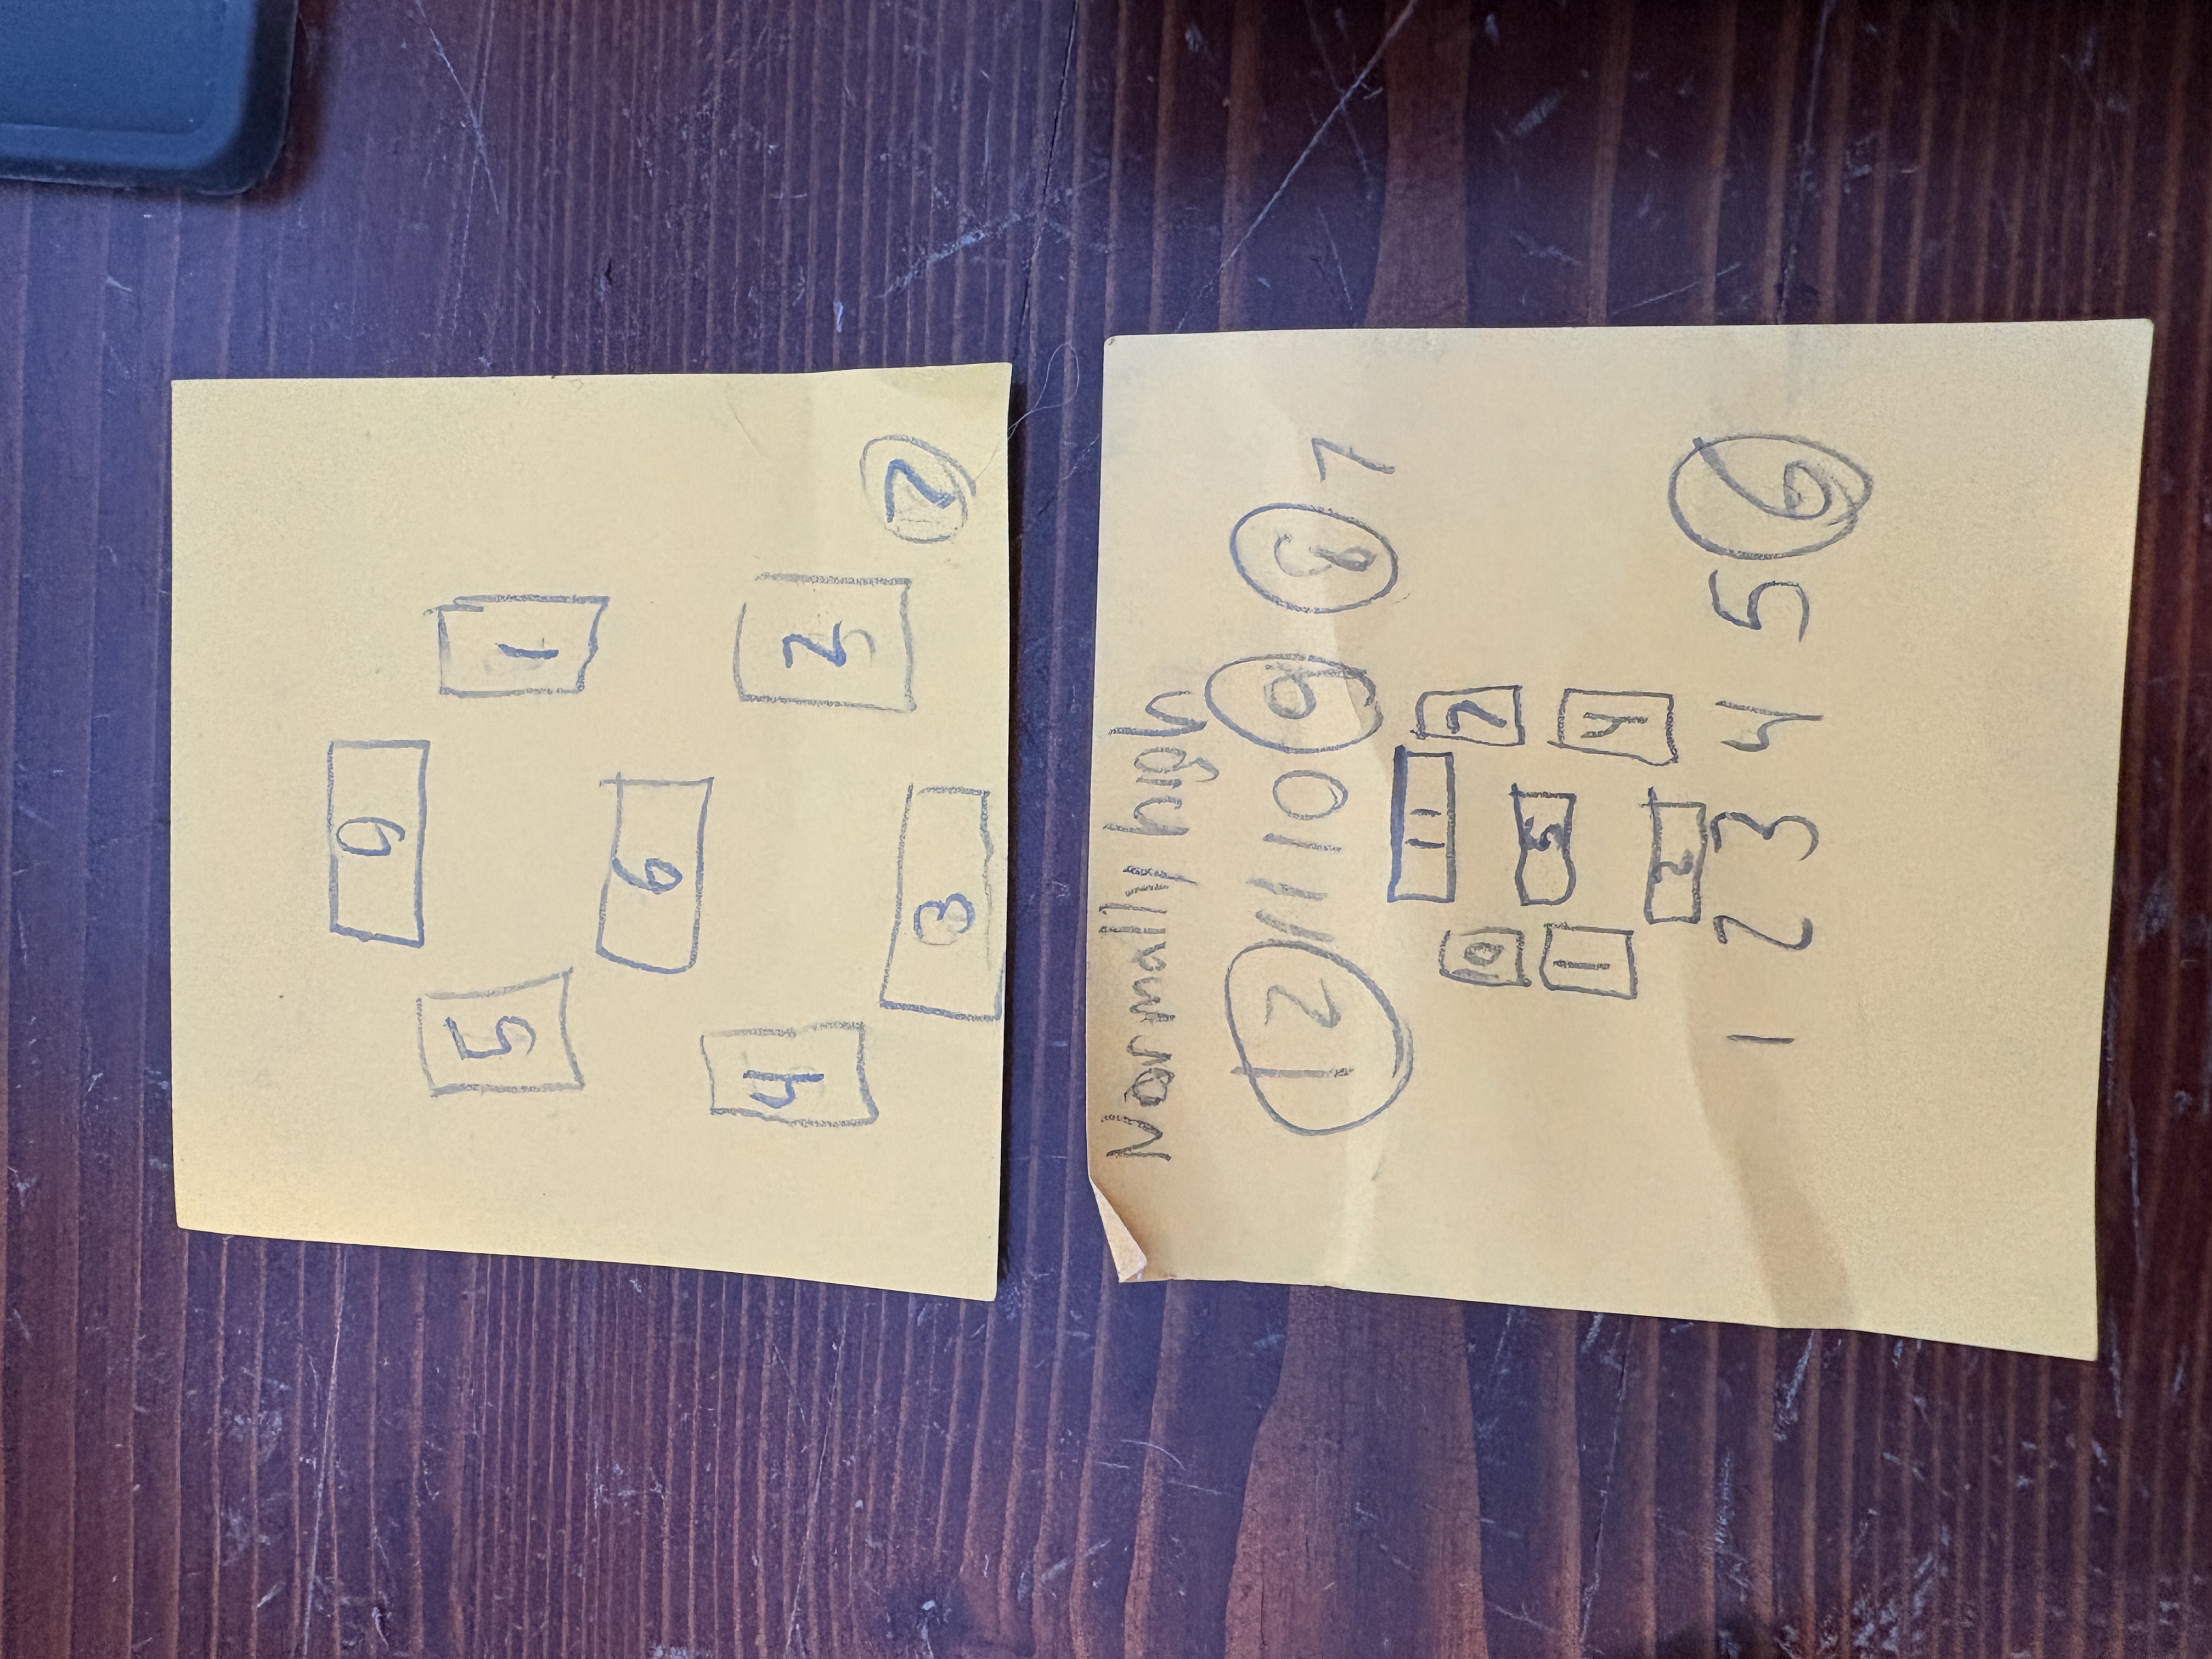 9
5 1
6
4 2
3 7
Normally high
12 11 10 9 8 7
11
10 7
5
1 4
2
1 2 3 4 5 6